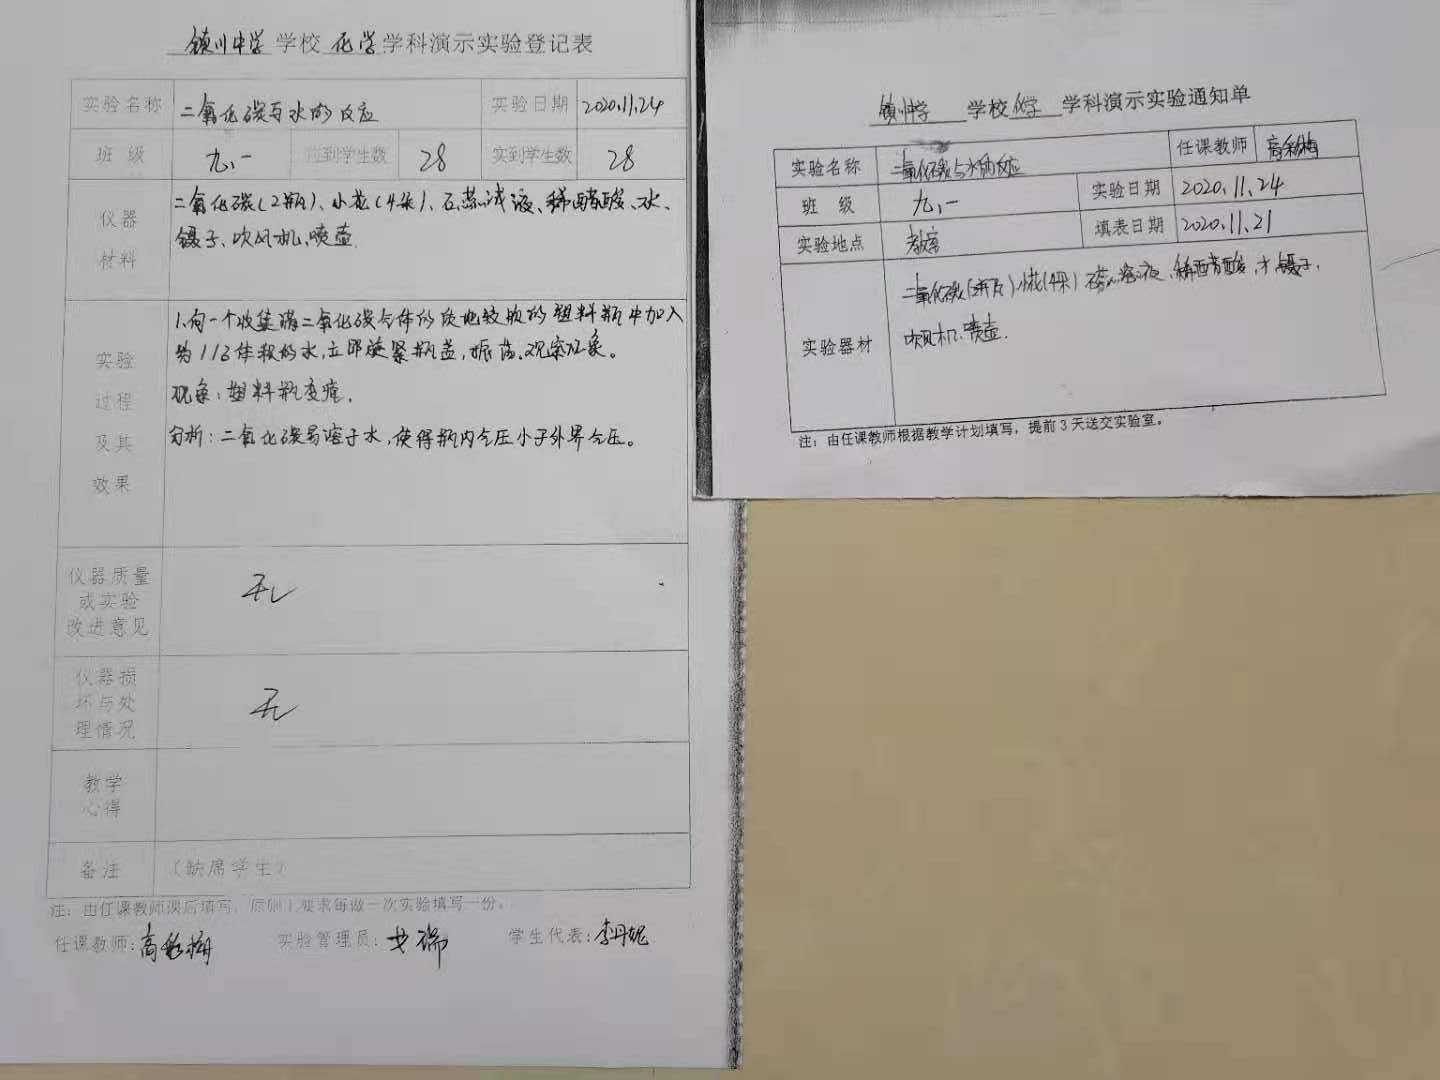 镇川中学 学校 化学 学科演示实验登记表
实验名称 二氧化碳与水的反应 实验日期 2020.11.24
班 级 九.一 应到学生数 28 实到学生数 28
仪器材料
二氧化碳(2瓶)、小花(4朵)、石蕊试液、稀醋酸、水、
镊子、吹风机、喷壶.
实验过程及其效果
1.向一个收集满二氧化碳气体的质地较软的塑料瓶中加入
约1/3体积的水,立即旋紧瓶盖,振荡。观察现象。
现象:塑料瓶变瘪.
分析:二氧化碳易溶于水,使得瓶内气压小于外界气压。
仪器质量或实验改进意见 无
仪器损坏与处理情况 无
教学心得
备注 (缺席学生)
注:由任课教师课后填写,原则上要求每做一次实验填写一份。
任课教师:高彩梅 实验管理员: 瑞 学生代表:李丹妮
镇川中学 学校 化学 学科演示实验通知单
实验名称 二氧化碳与水的反应 任课教师 高彩梅
班 级 九.一 实验日期 2020.11.24
实验地点 教室 填表日期 2020.11.21
实验器材
二氧化碳( )小花(4朵) 石蕊溶液、稀醋酸、水 镊子、
吹风机、喷壶.
注:由任课教师根据教学计划填写,提前3天送交实验室。